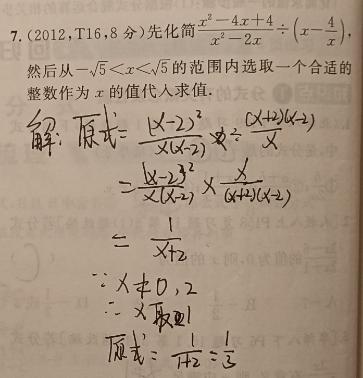 7.(2012,T16,8分)先化简(x²-4x+4)/(x²-2x)÷(x-4/x),
然后从-√5<x<√5的范围内选取一个合适的
整数作为x的值代入求值.
解:原式=(x-2)²/x(x-2)÷(x+2)(x-2)/x
=(x-2)²/x(x-2)×x/(x+2)(x-2)
=1/(x+2)
∵x≠0,2
∴x取1
原式=1/(1+2)=1/3